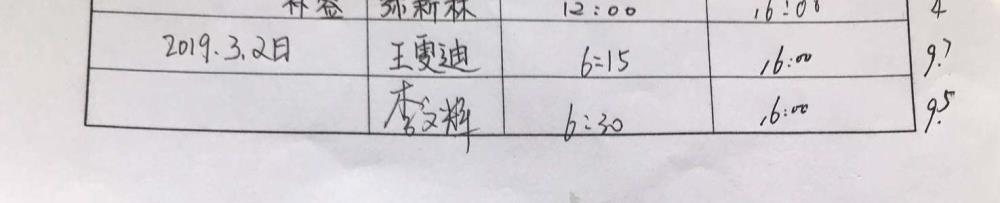 补签 孙新林 12:00 16:00 4
2019.3.2日 王雯迪 6:15 16:00 9.7
李文辉 6:30 16:00 9.5